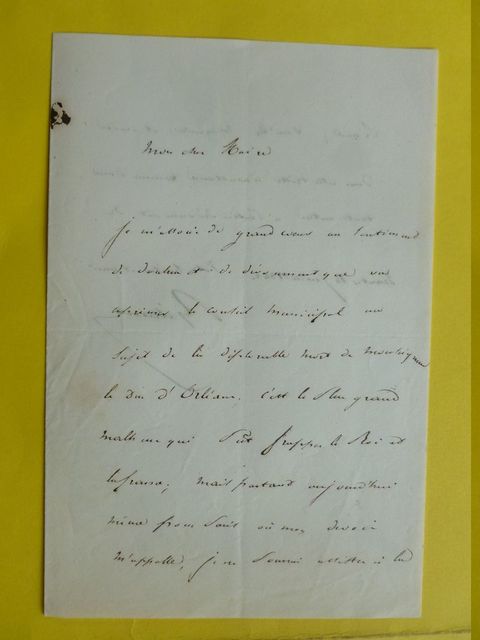 Mon cher Maire
je m'associe de grand coeur au sentiment
de douleur et de dévouement que vous
exprime le conseil municipal au
sujet de la déplorable mort de monseigneur
le Duc d'Orléans. c'est le plus grand
malheur qui Pût frapper le Roi et
la france; mais partant aujourd'hui
même pour où mon devoir
m'appelle, je ne à la